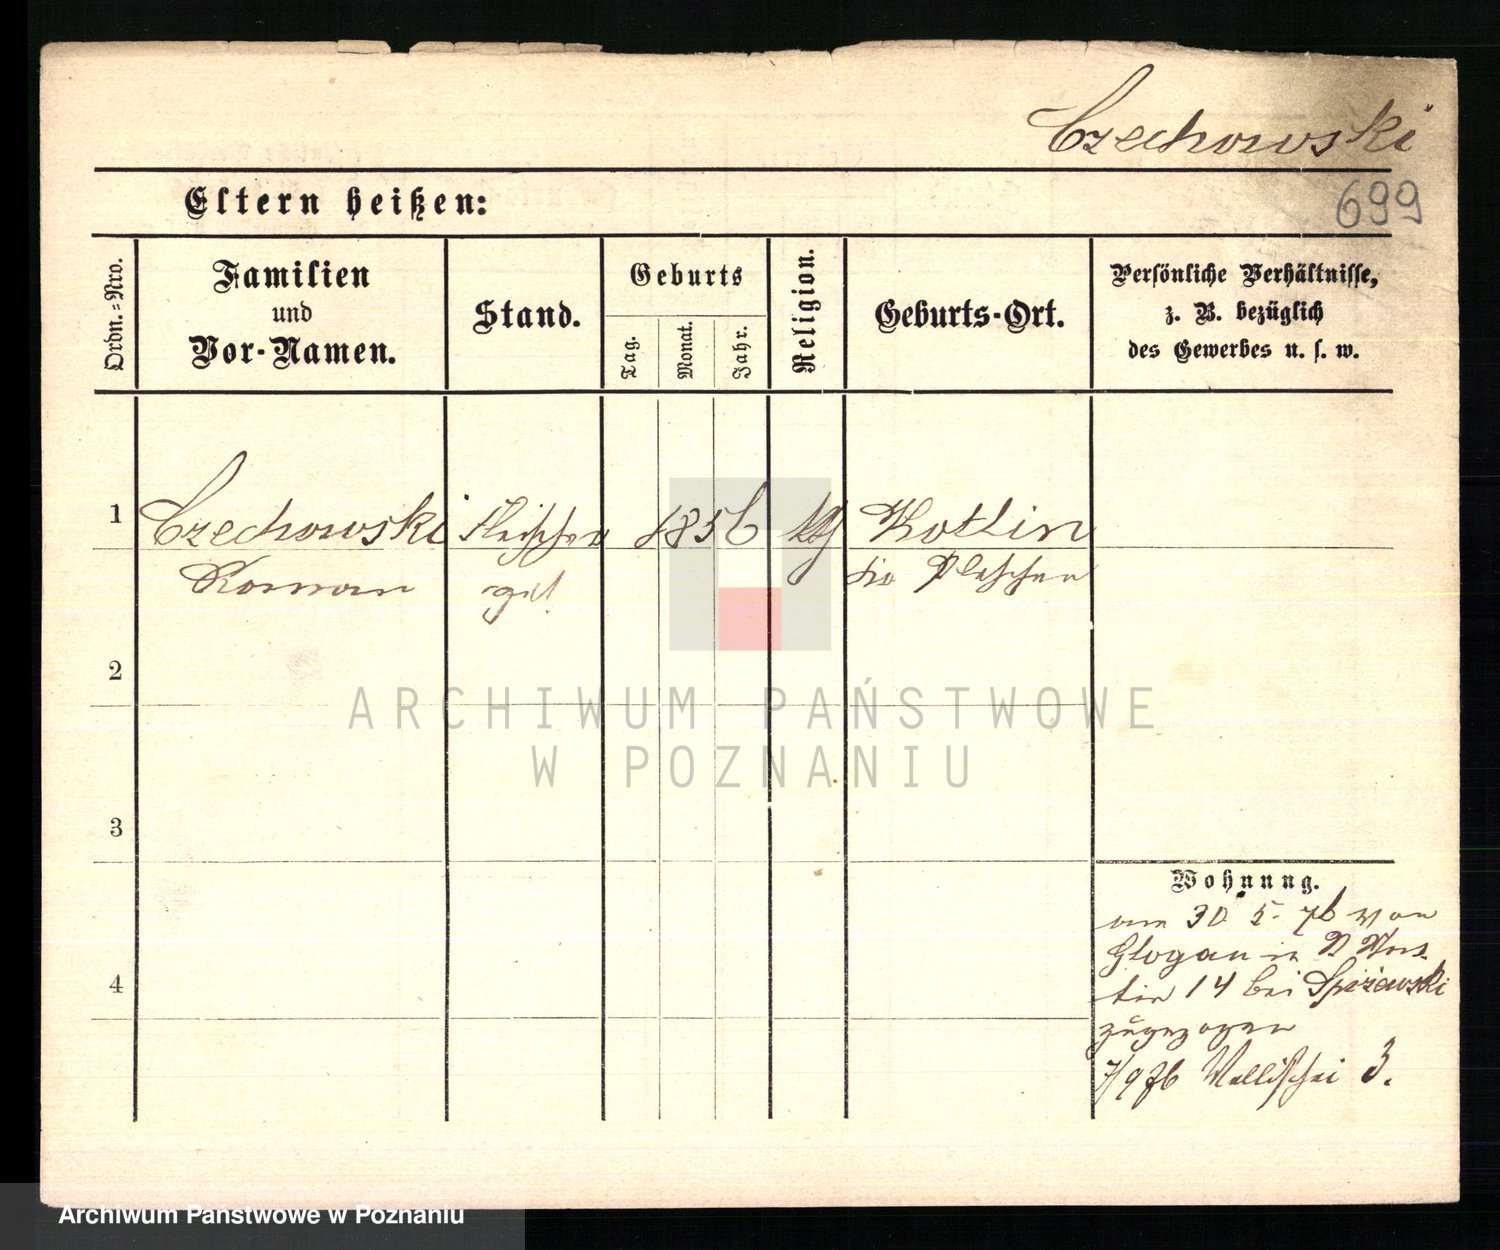 Czechowski
699
Eltern heißen:
Ordn.=Nro.
Familien
und
Vor-Namen.
Stand.
Geburts
Tag.
Monat.
Jahr.
Religion.
Geburts-Ort.
Persönliche Verhältnisse,
z. B. bezüglich
des Gewerbes u. s. w.
1
Czechowski
Roman
Fleischer
1856
Kotlin
Pleschen
2
ARCHIWUM PAŃSTWOWE
W POZNANIU
3
4
Wohnung.
am 30. 5. 76 von
Glogau in
14 bei Spizewski
zugezogen
7/9 76 Wallischei 3.
Archiwum Państwowe w Poznaniu